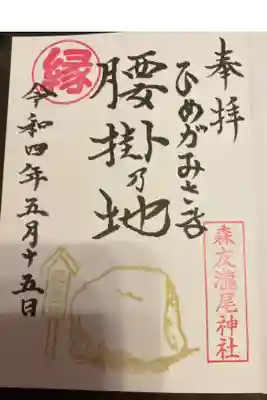 奉拝
ひめがみさま
腰掛乃地
縁
令和四年五月十五日
森友瀧尾神社